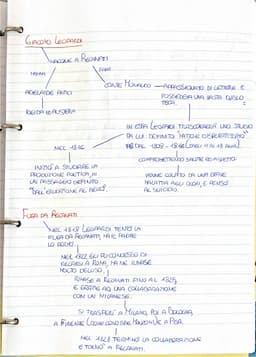 GIACOMO LEOPARDI
NACQUE A RECANATI
MAMMA
PAPÀ
ADELAIDE ANTICI
CONTE MONALDO
APPASSIONATO DI LETTERE E
POSSEDEVA UNA VASTA BIBLIO
TECA.
RIGIDA E AUSTERA
IN ESSA LEOPARDI TRASCORRERÀ UNO STUDIO
DA LUI DEFINITO "MATTO E DISPERATISSIMO"
DAL 1809 - 1816 (DAGLI 11 AI 18 ANNI)
NEL 1816
COMPROMETTENDO SALUTE ED ASPETTO
INIZIÒ A STUDIARE LA
PRODUZIONE POETICA, IN
UN PASSAGGIO DEFINITO
"DALL'ERUDIZIONE AL BELLO".
VENNE COLPITO DA UNA GRAVE
MALATTIA AGLI OCCHI, E PENSÒ
AL SUICIDIO.
FUGA DA RECANATI
NEL 1819 LEOPARDI TENTÒ LA
FUGA DA RECANATI, MA IL PADRE
LO
NEL 1822 GLI FU CONCESSO DI
RECARSI A ROMA, MA NE RIMASE
MOLTO DELUSO,
RIMASE A RECANATI FINO AL 1825,
E GRAZIE AD UNA COLLABORAZIONE
CON UN MILANESE.
SI TRASFERÌ A MILANO, POI A BOLOGNA,
A FIRENZE (DOVE CONOBBE MANZONI) E A PISA.
NEL 1828 TERMINÒ LA COLLABORAZIONE
E TORNÒ A RECANATI.